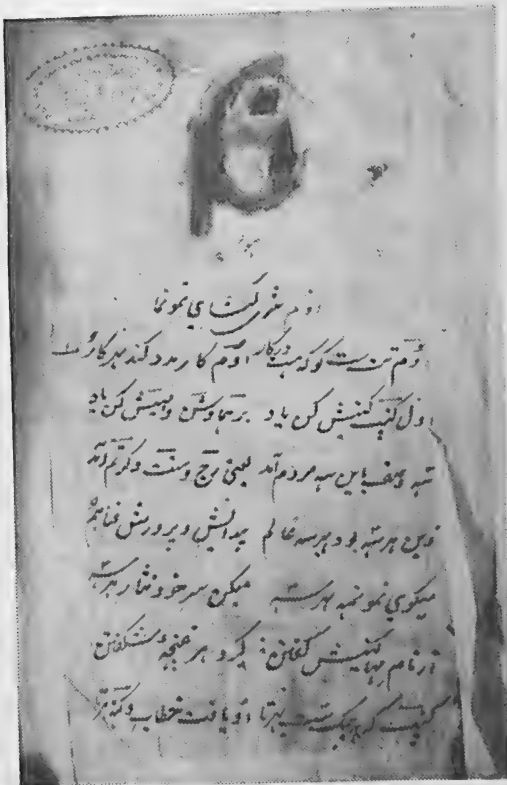 اوم شری گنیشای نمونما
اوم تت ست گو که هست درکار اوم کار مدد کند بهر کار
اول گنپت گنیش کن یاد برهما و بشن و مهیش کن یاد
سه وصف باین سه مردم آمد یعنی رج و ست و تم آمد
زین هر سه بود بهر سه عالم پیدایش و پرورش فنا هم
میگوی نمو نمه بهر سه میکن سر خود نثار هر سه
از نام مها گنیش گفتن گیرد هر غنچه شگفتن
گنپت که بهرتا او یافت خطاب